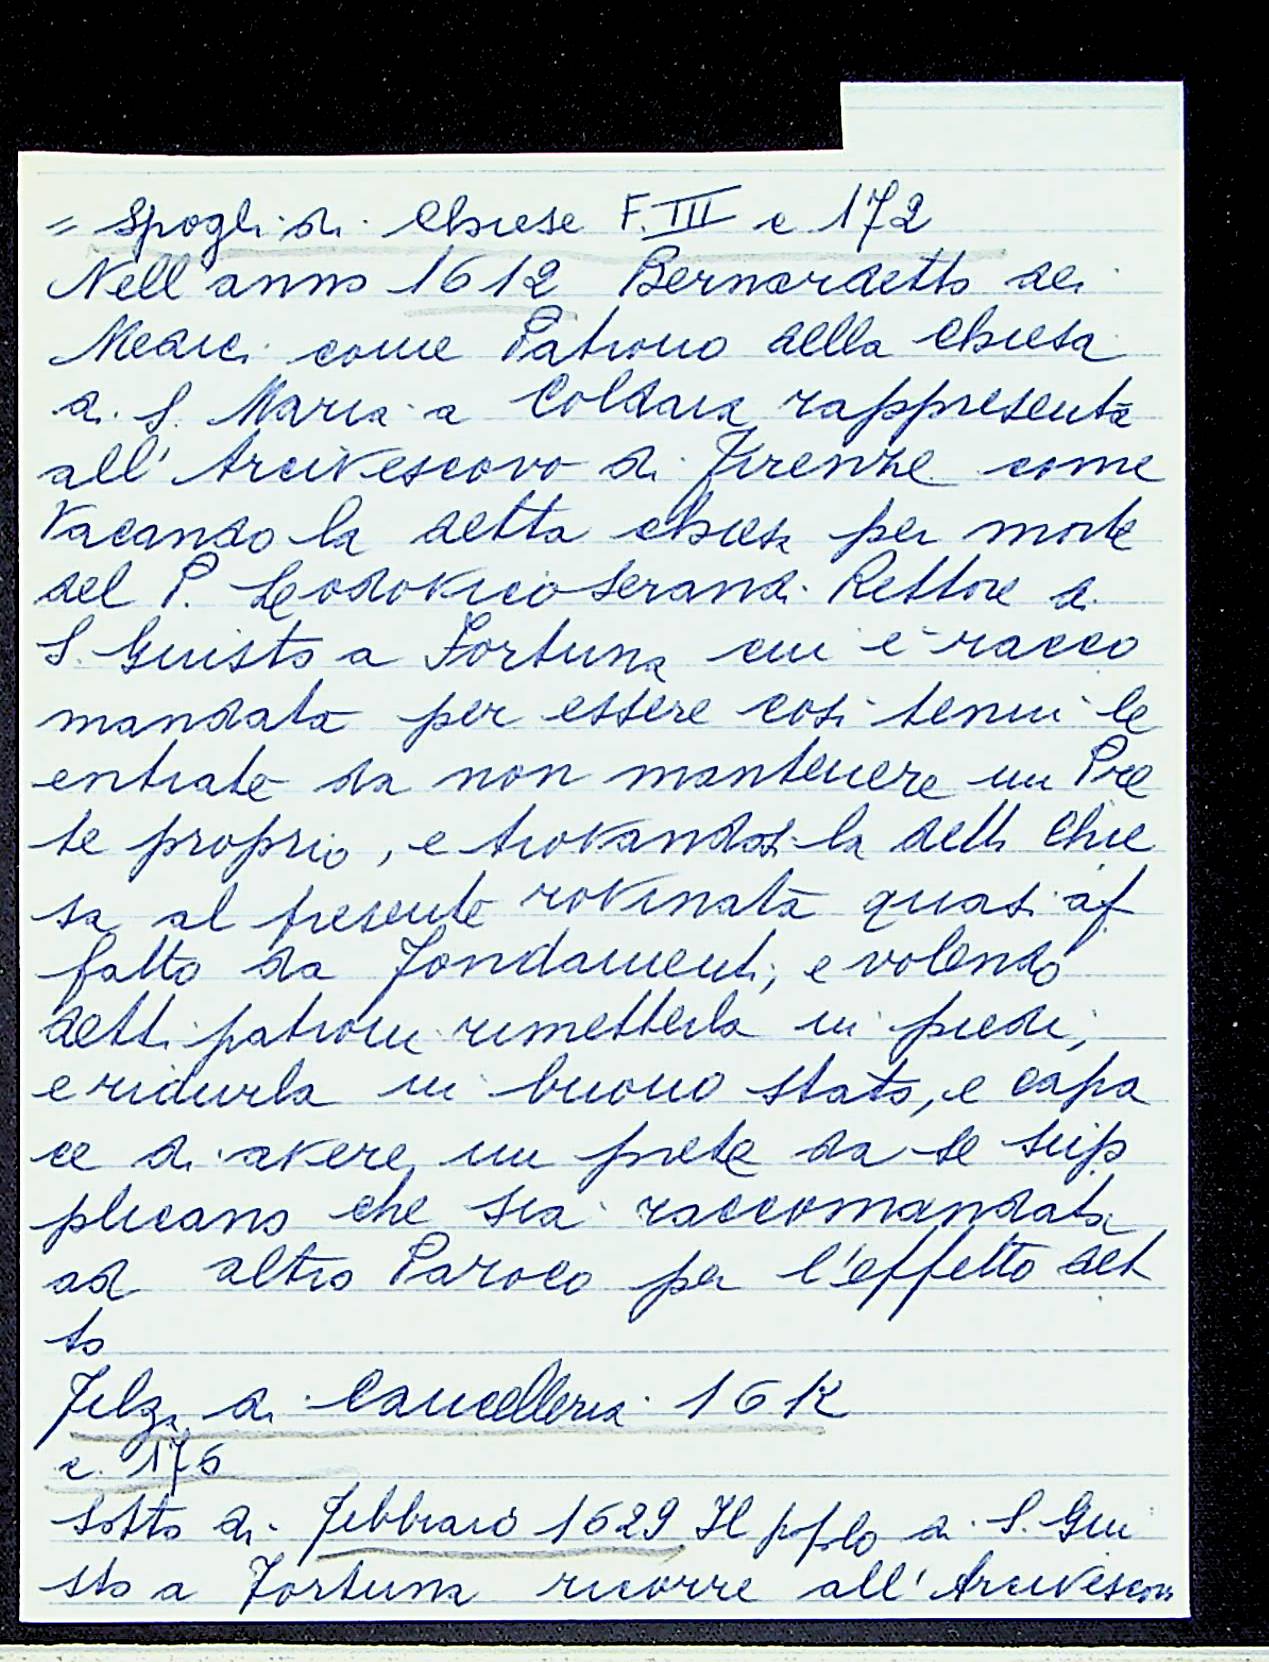 = Spogli di Chiese F. III c 172
Nell'anno 1612 Bernardetto dei
Medici come Patrono della Chiesa
di S. Maria a Coldaia rappresenta
all'Arcivescovo di Firenze come
Vacando la detta chiesa per morte
del P. Lodovico Serandi Rettore di
S. Giusto a Fortuna cui è racco
mandata per essere così tenui le
entrate da non mantenere un Pre
te proprio, e trovandosi la detta Chie
sa al presente rovinata quasi af
fatto da fondamenti, e volendo
detti patroni rimetterla in piedi,
e ridurla in buono stato, e capa
ce di avere un prete da se sup
plicano che sia raccomandata
ad altro Paroco per l'effetto det
to
Filza di Cancelleria 1612
c. 176
Sotto di febbraio 1629 Il pplo di S. Giu
sto a Fortuna ricorre all'Arcivescovo